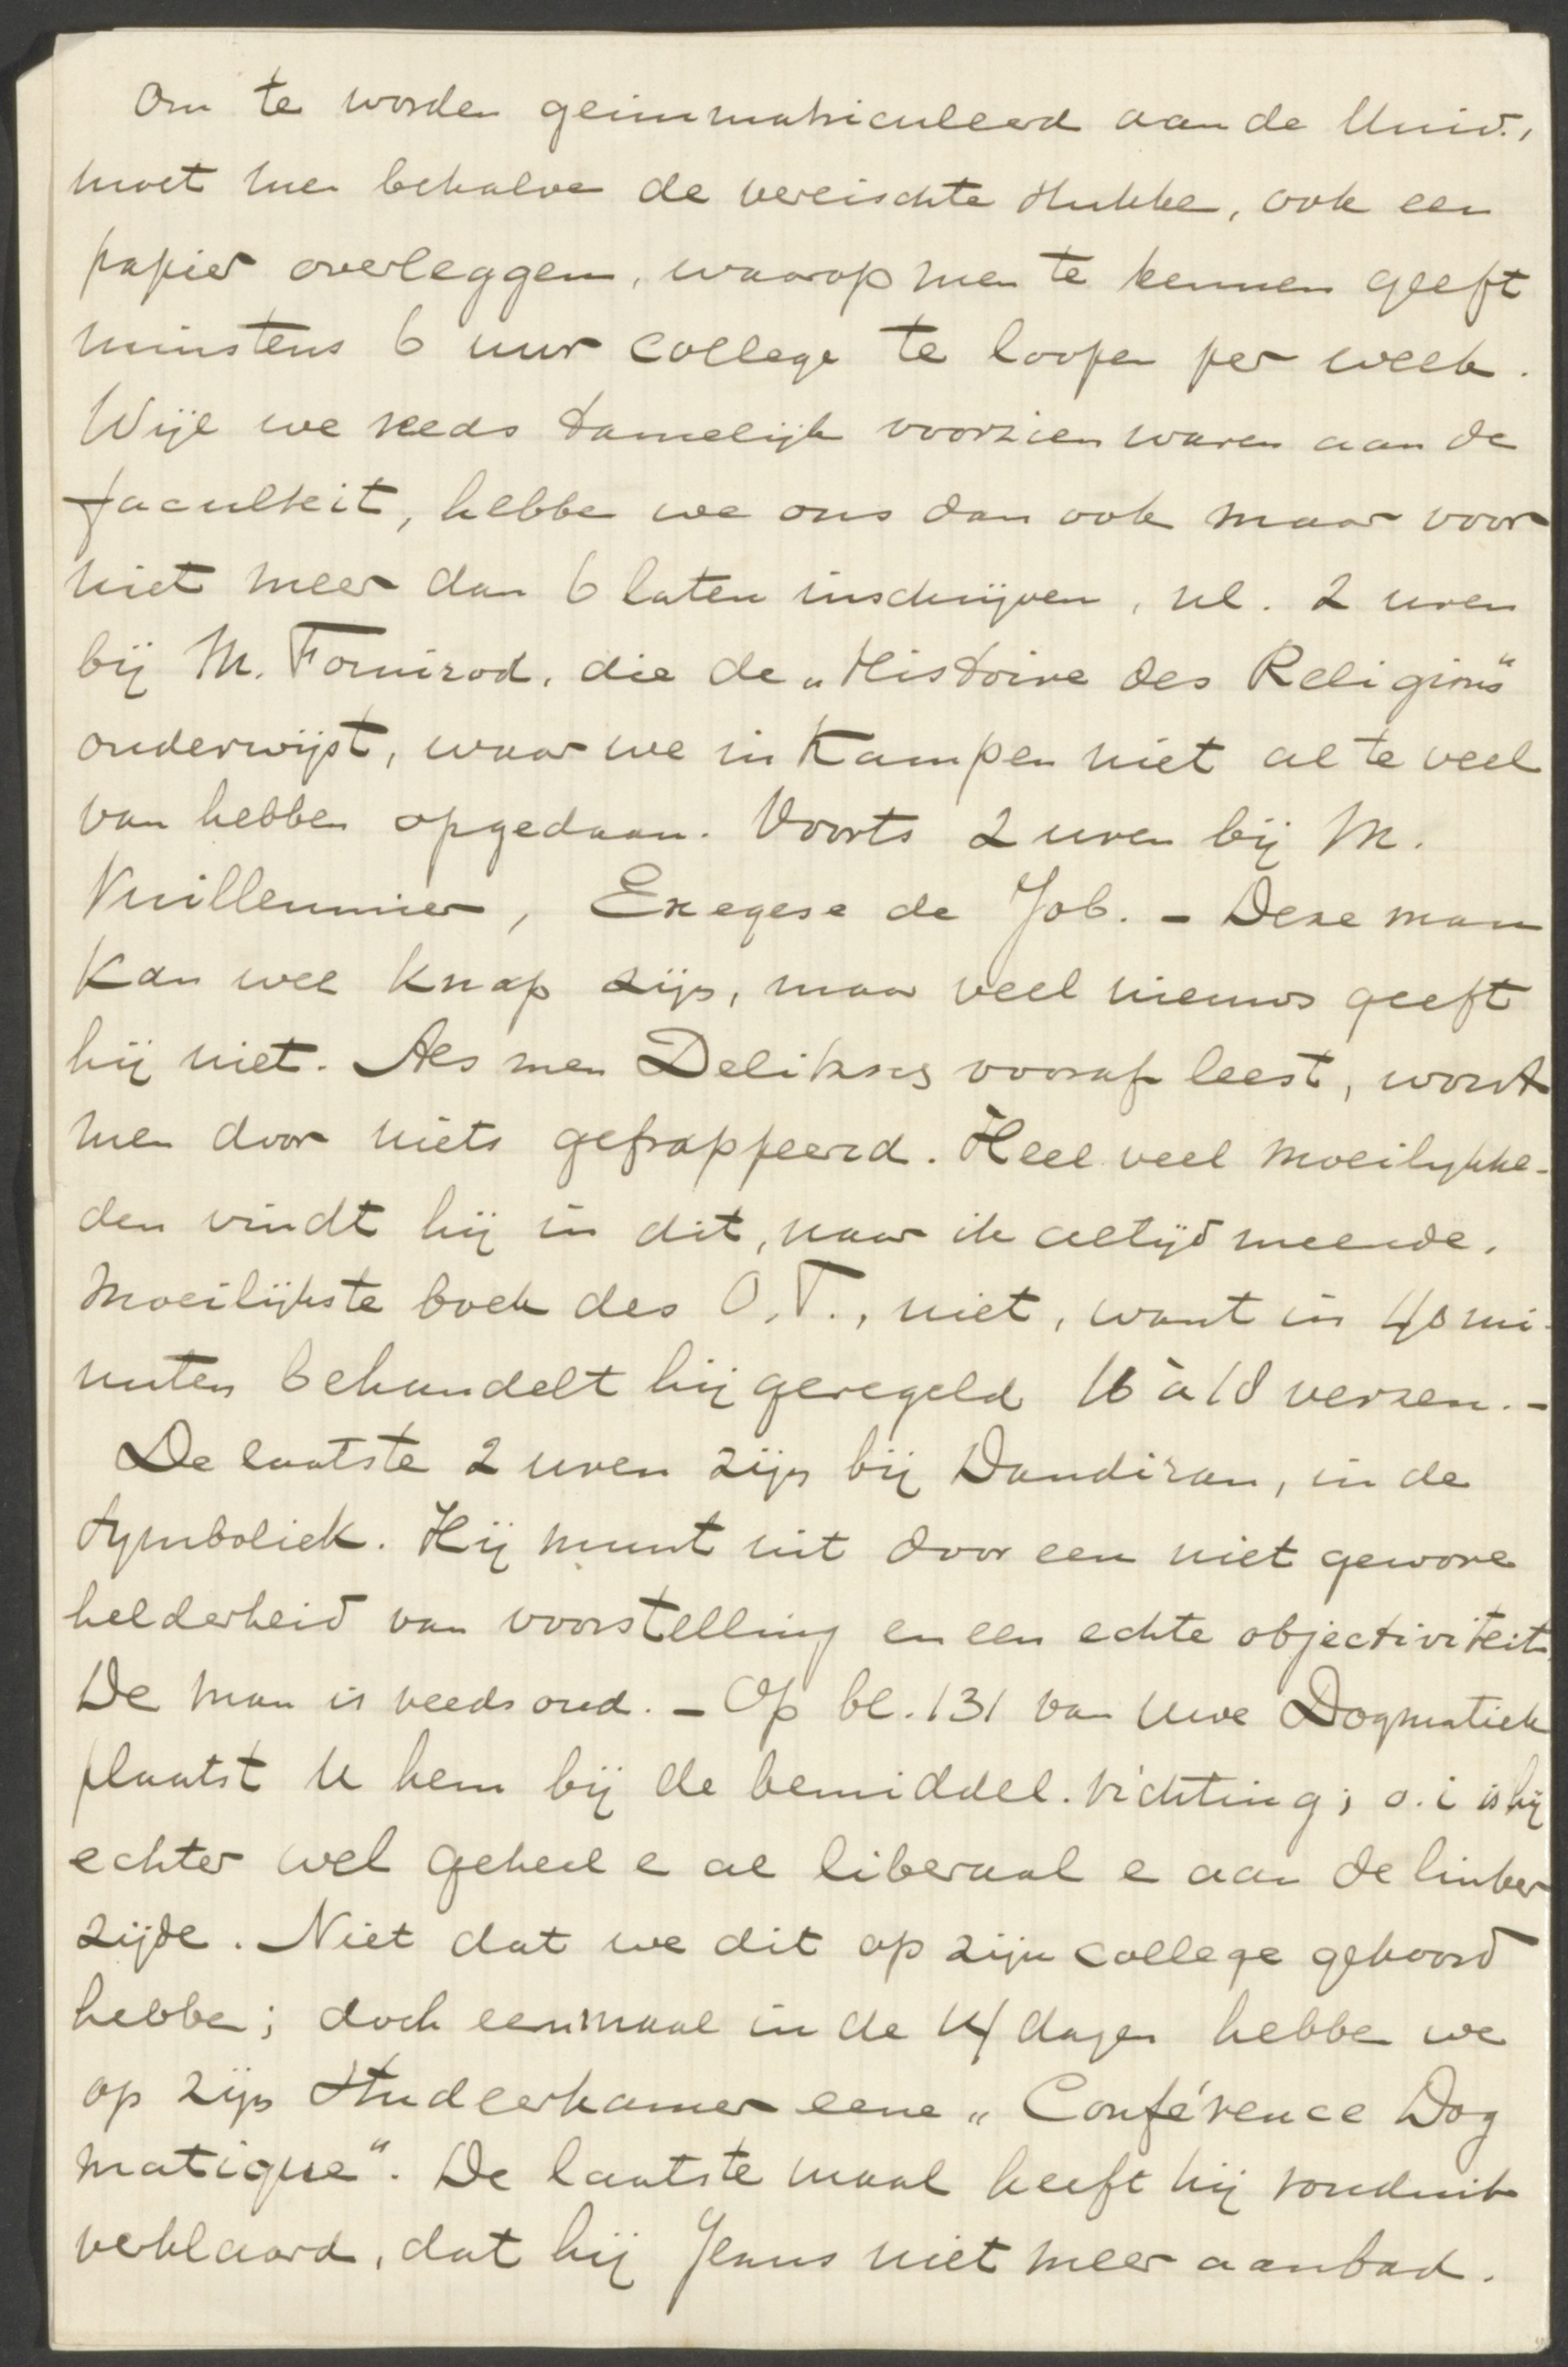 Om te worden geimmatriculeerd aan de Univ.,
moet men behalve de vereischte stukken, ook een
papier overleggen, waarop men te kennen geeft
minstens 6 uur college te loopen per week.
Wijl we reeds tamelijk voorzien waren aan de
faculteit, hebben we ons dan ook maar voor
niet meer dan 6 laten inschrijven, nl. 2 uren
bij M. Fornirod, die de „Histoire des Religions"
onderwijst, waar we in Kampen niet al te veel
van hebben opgedaan. Voorts 2 uren bij M.
Vuilleumier, Exegese de Job. - Deze man
kan wel knap zijn, maar veel nieuws geeft
hij niet. Als men Delitzsch vooraf leest, wordt
men door niets gefrappeerd. Heel veel moeilijkhe-
den vindt hij in dit, naar ik altijd meende,
moeilijkste boek des O.T., niet, want in 40 mi-
nuten behandelt hij geregeld 16 à 18 verzen. -
De laatste 2 uren zijn bij Dandiran, in de
Symboliek. Hij munt uit door een niet gewone
helderheid van voorstelling en een echte objectiviteit.
De man is reeds oud. - Op bl. 131 van Uwe Dogmatiek
plaatst U hem bij de bemiddel. richting; o.i is hij
echter wel geheel e al liberaal e aan de linker
zijde. Niet dat we dit op zijn college gehoord
hebben; doch eenmaal in de 14 dagen hebben we
op zijn studeerkamer eene „Conférence Dog
matique". De laatste maal heeft hij ronduit
verklaard, dat hij Jezus niet meer aanbad.